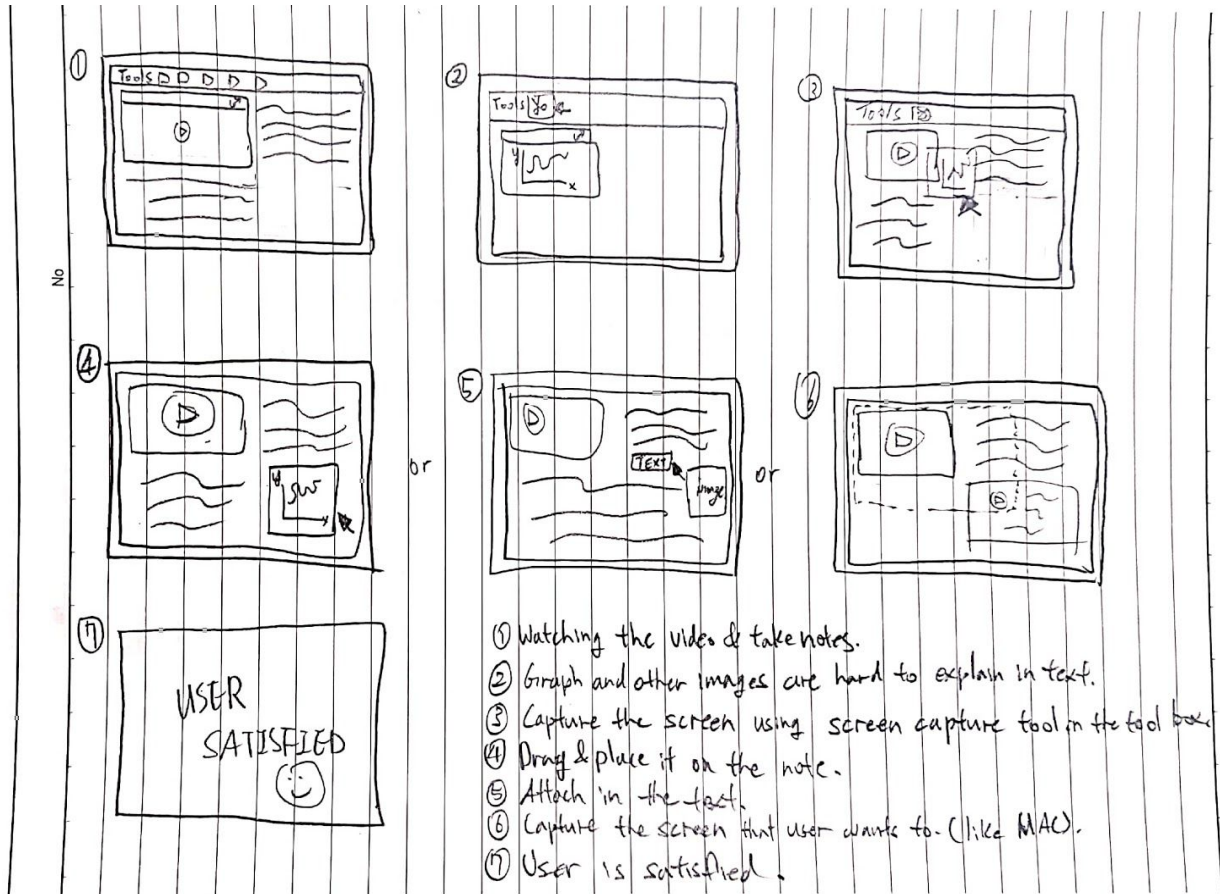 ①
Tools
②
Tools
y
x
③
Tools
④
y
x
or
⑤
TEXT
image
or
⑥
No
⑦
USER
SATISFIED
① Watching the video & take notes.
② Graph and other images are hard to explain in text.
③ Capture the screen using screen capture tool in the tool box.
④ Drag & place it on the note.
⑤ Attach in the text.
⑥ Capture the screen that user wants to. (like MAC).
⑦ User is satisfied.